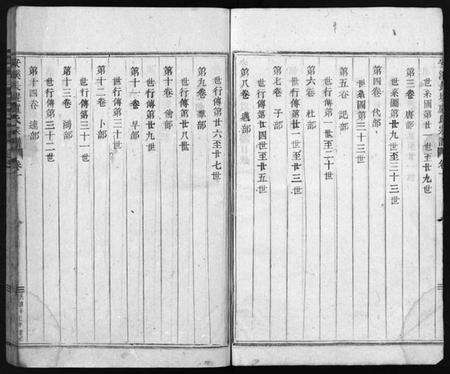 世系圖第廿一世至廿九世
第三卷 唐部
世系圖第廿九世至三十三世
第四卷 代部
世系圖第三十三世
第五卷 記部
世行傳第一世至二十世
第六卷 杜部
世行傳第廿一世至廿三世
第七卷 子部
世行傳第廿四世至廿五世
第八卷
世行傳第廿六世至廿七世
第九卷
世行傳第廿八世
第十卷
世行傳第廿九世
第十一卷
世行傳第三十世
第十二卷 卜部
世行傳第三十一世
第十三卷 鴻部
世行傳第三十二世
第十四卷 達部